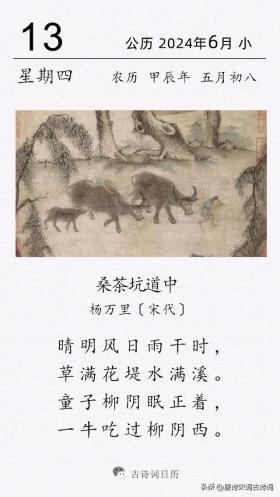 13
公历 2024年6月 小
星期四
农历 甲辰年 五月初八
桑茶坑道中
杨万里〔宋代〕
晴明风日雨干时，
草满花堤水满溪。
童子柳阴眠正着，
一牛吃过柳阴西。
古诗词日历
头条 @唐诗宋词古诗词